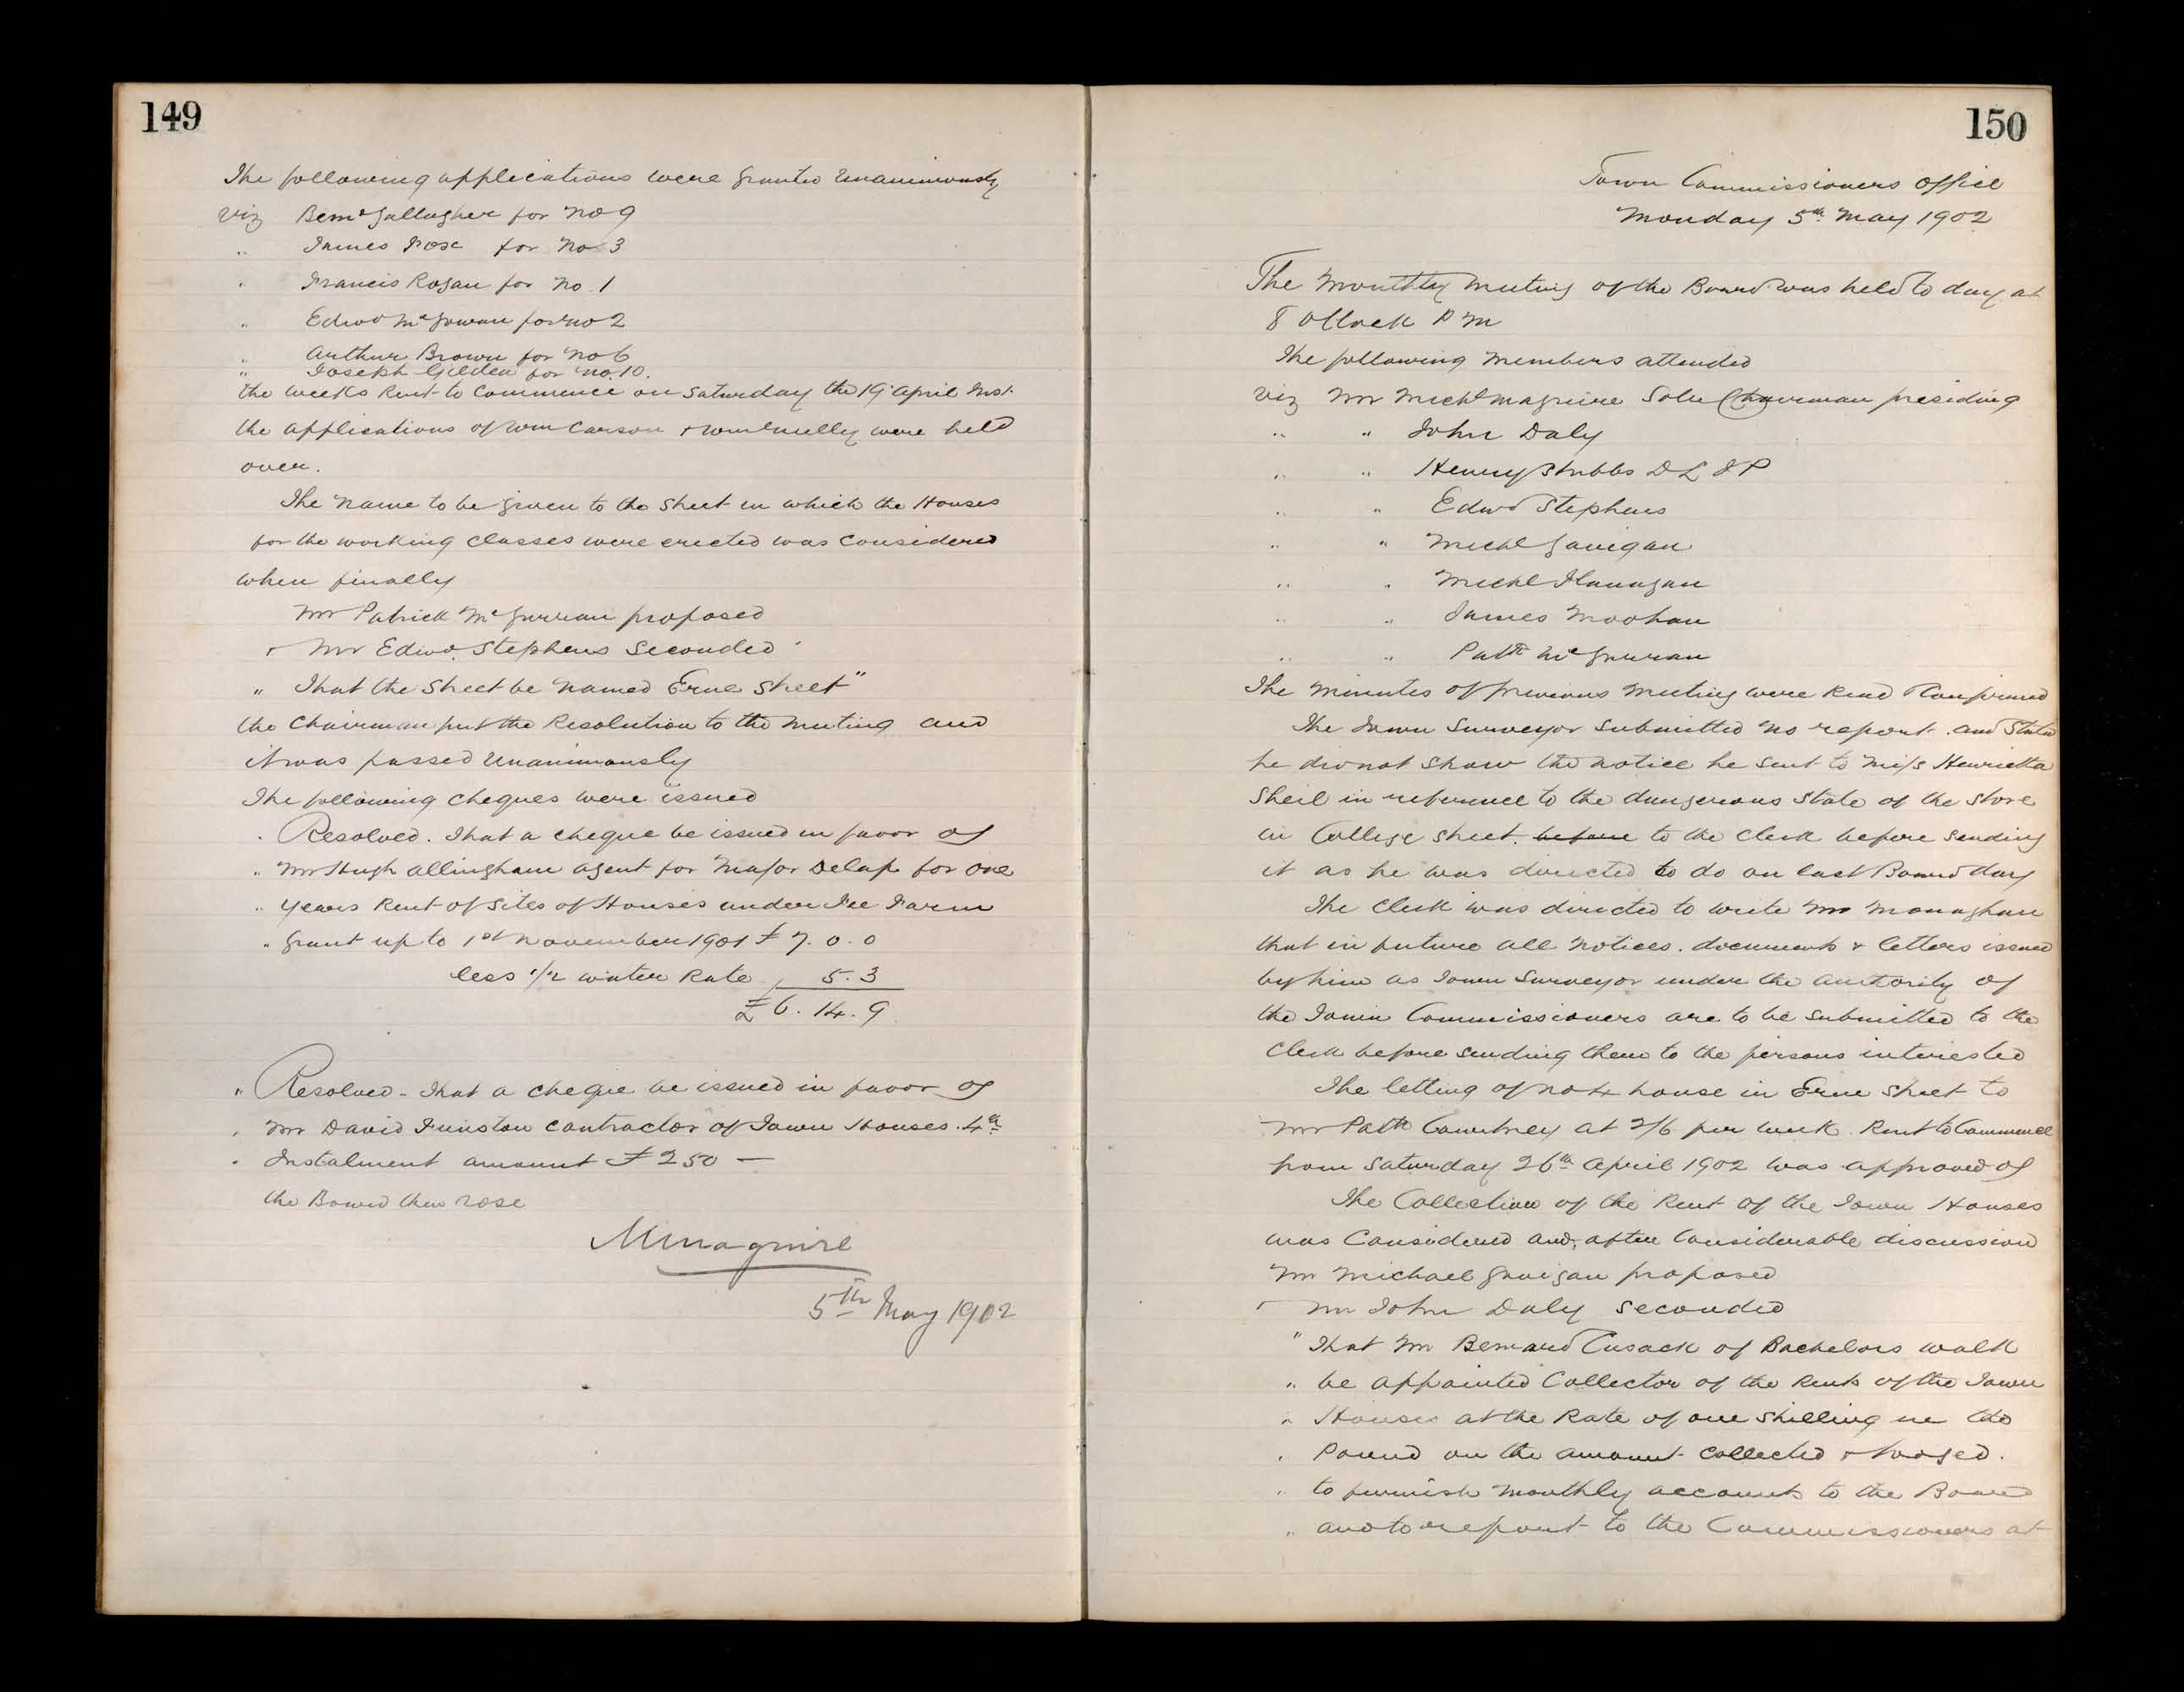 149
The following applications were granted Unanimously
viz Bernd Gallagher for No 9
" James Rose for No 3
" Francis Rogan for No. 1
" Edwd McGowan for No 2
" Arthur Brown for No 6
" Joseph Gildea for No. 10.
the weeks Rent to Commence on Saturday the 19 April Inst.
the applications of Wm Carson & Wm were held
over.
The Name to be given to the Street in which the Houses
for the working Classes were erected was Considered
when finally
Mr Patrick McGurran proposed
& Mr Edwd. Stephens Seconded
" That the Street be Named Erne Street"
the Chairman put the Resolution to the Meeting and
it was passed Unanimously
The following Cheques were issued
" Resolved. That a cheque be issued in favor of
" Mr Hugh Allingham Agent for Major Delap for one
" years Rent of Sites of Houses under Fee Farm
" Grant up to 1st November 1901 £ 7. 0. 0
less 1/2 water Rate 5. 3
£ 6. 14. 9
" Resolved - That a cheque be issued in favor of
" Mr David Funston Contractor of Town Houses. 4th
" Instalment amount £250 —
the Board then rose
M Maguire
5th May 1902
150
Town Commissioners Office
Monday 5th May 1902
The Monthly Meeting of the Board was held to day at
8 OClock P M
The following Members attended
viz Mr Michl Maguire Solr Chairman presiding
" " John Daly
" " Henry Stubbs D L J P
" " Edwd Stephens
" " Michl Gavigan
" " Michl Flanagan
" " James Moohan
" " Patk McGurran
The Minutes of previous Meeting were Read & Confirmed
The Town Surveyor Submitted No report. and Stated
he did not Show the Notice he Sent to Miss Henrietta
Sheil in reference to the dangerous State of the Store
in College Street. before to the Clerk before Sending
it as he was directed to do on last Board day
The Clerk was directed to write Mr Monaghan
that in future all Notices. documents & letters issued
by him as Town Surveyor under the Authority of
the Town Commissioners are to be Submitted to the
Clerk before sending them to the persons interested
The letting of No 4 house in Erne Street to
Mr Patk Courtney at 2/6 per week. Rent to Commence
from Saturday 26th April 1902 was approved of
The Collection of the Rent of the Town Houses
was Considered and, after Considerable discussion
Mr Michael Gavigan proposed
& Mr John Daly Seconded
" That Mr Bernard Cusack of Bachelors walk
" be Appointed Collector of the Rents of the Town
" Houses at the Rate of one Shilling in the
" Pound on the amount Collected & lodged.
" to furnish Monthly accounts to the Board
" and to report to the Commissioners at